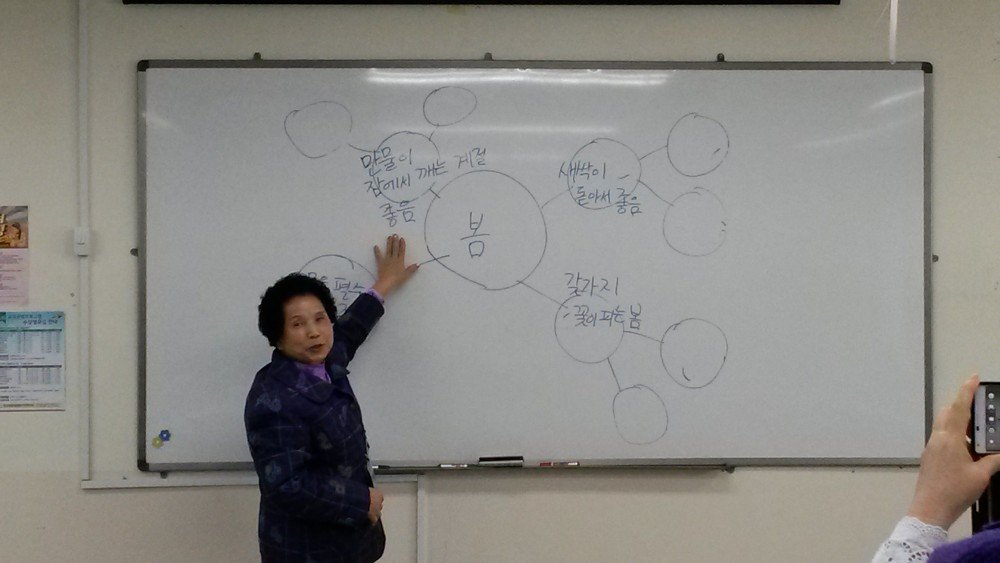 만물이
잠에서 깨는 계절
좋음
봄
새싹이
돋아서 좋음
갖가지
꽃이 피는 봄